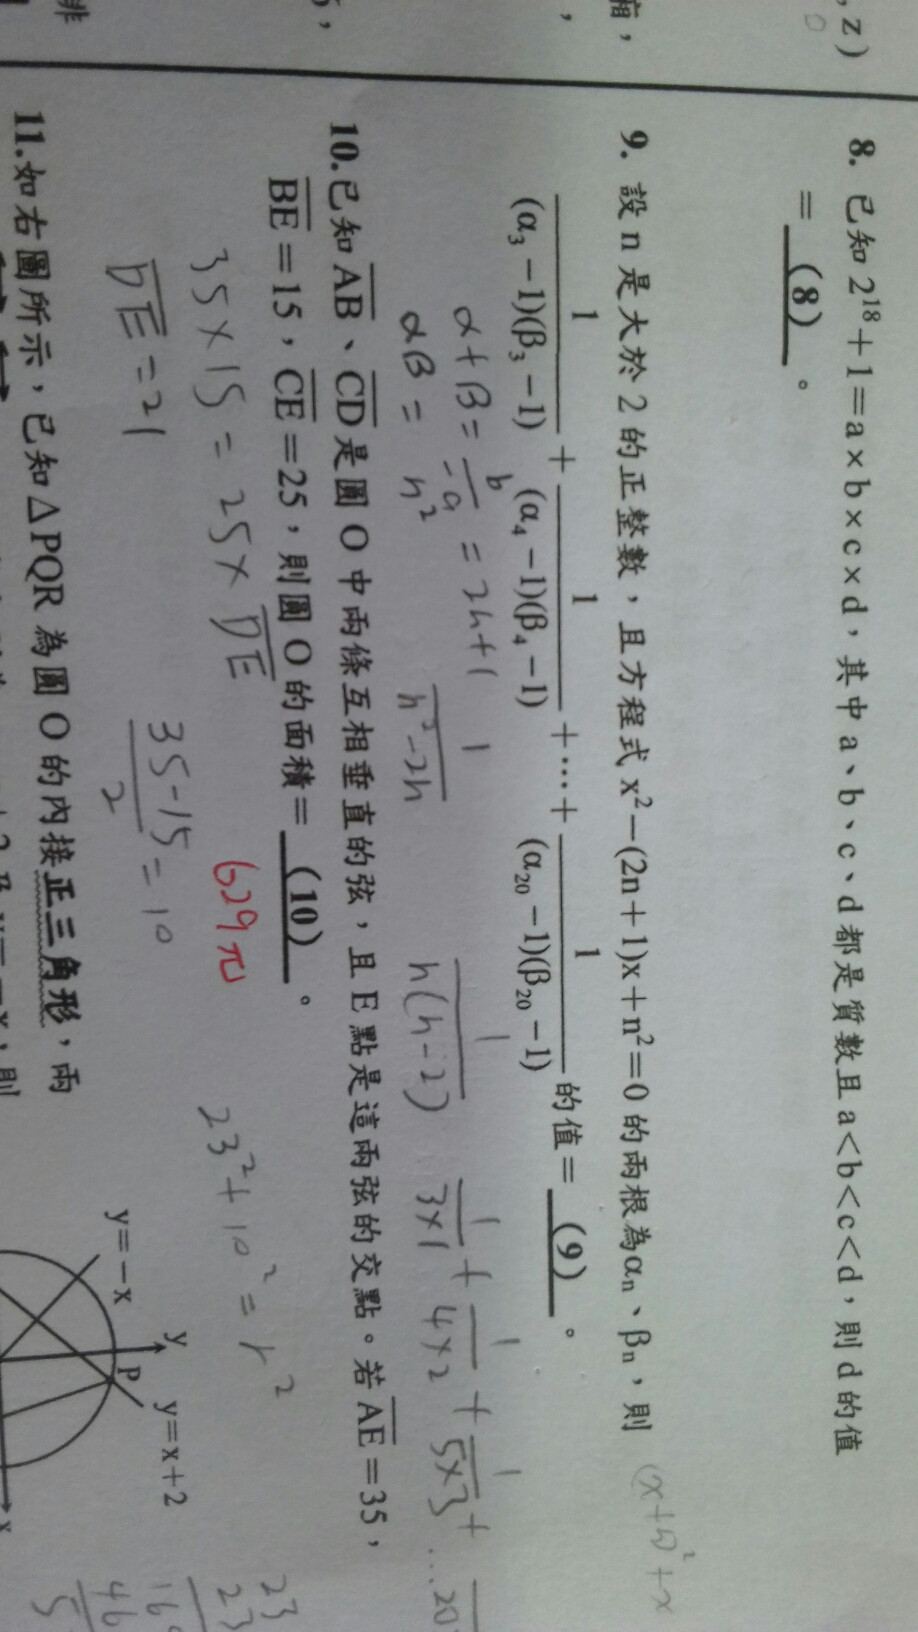 , z)
0
8. 已知 2¹⁸+1=a×b×c×d,其中 a、b、c、d 都是質數且 a<b<c<d,則 d 的值
= (8) 。
9. 設 n 是大於 2 的正整數,且方程式 x²−(2n+1)x+n²=0 的兩根為αₙ、βₙ,則
(x+n)²+x
1/((α₃−1)(β₃−1)) + 1/((α₄−1)(β₄−1)) +⋯+ 1/((α₂₀−1)(β₂₀−1)) 的值= (9) 。
α+β= b/−a = 2n+1
αβ = n²
1/(n²−2n)
1/(n(n−2))
1/(3×1) + 1/(4×2) + 1/(5×3) + ... 20
10.已知 AB、CD 是圓 O 中兩條互相垂直的弦,且 E 點是這兩弦的交點。若 AE=35,
BE=15,CE=25,則圓 O 的面積= (10) 。
35×15=25×DE
DE=21
(35−15)/2 = 10
629π
23²+10²=r²
23
23
46
11.如右圖所示,已知△PQR 為圓 O 的內接正三角形,兩
y=−x
y
P
y=x+2
x